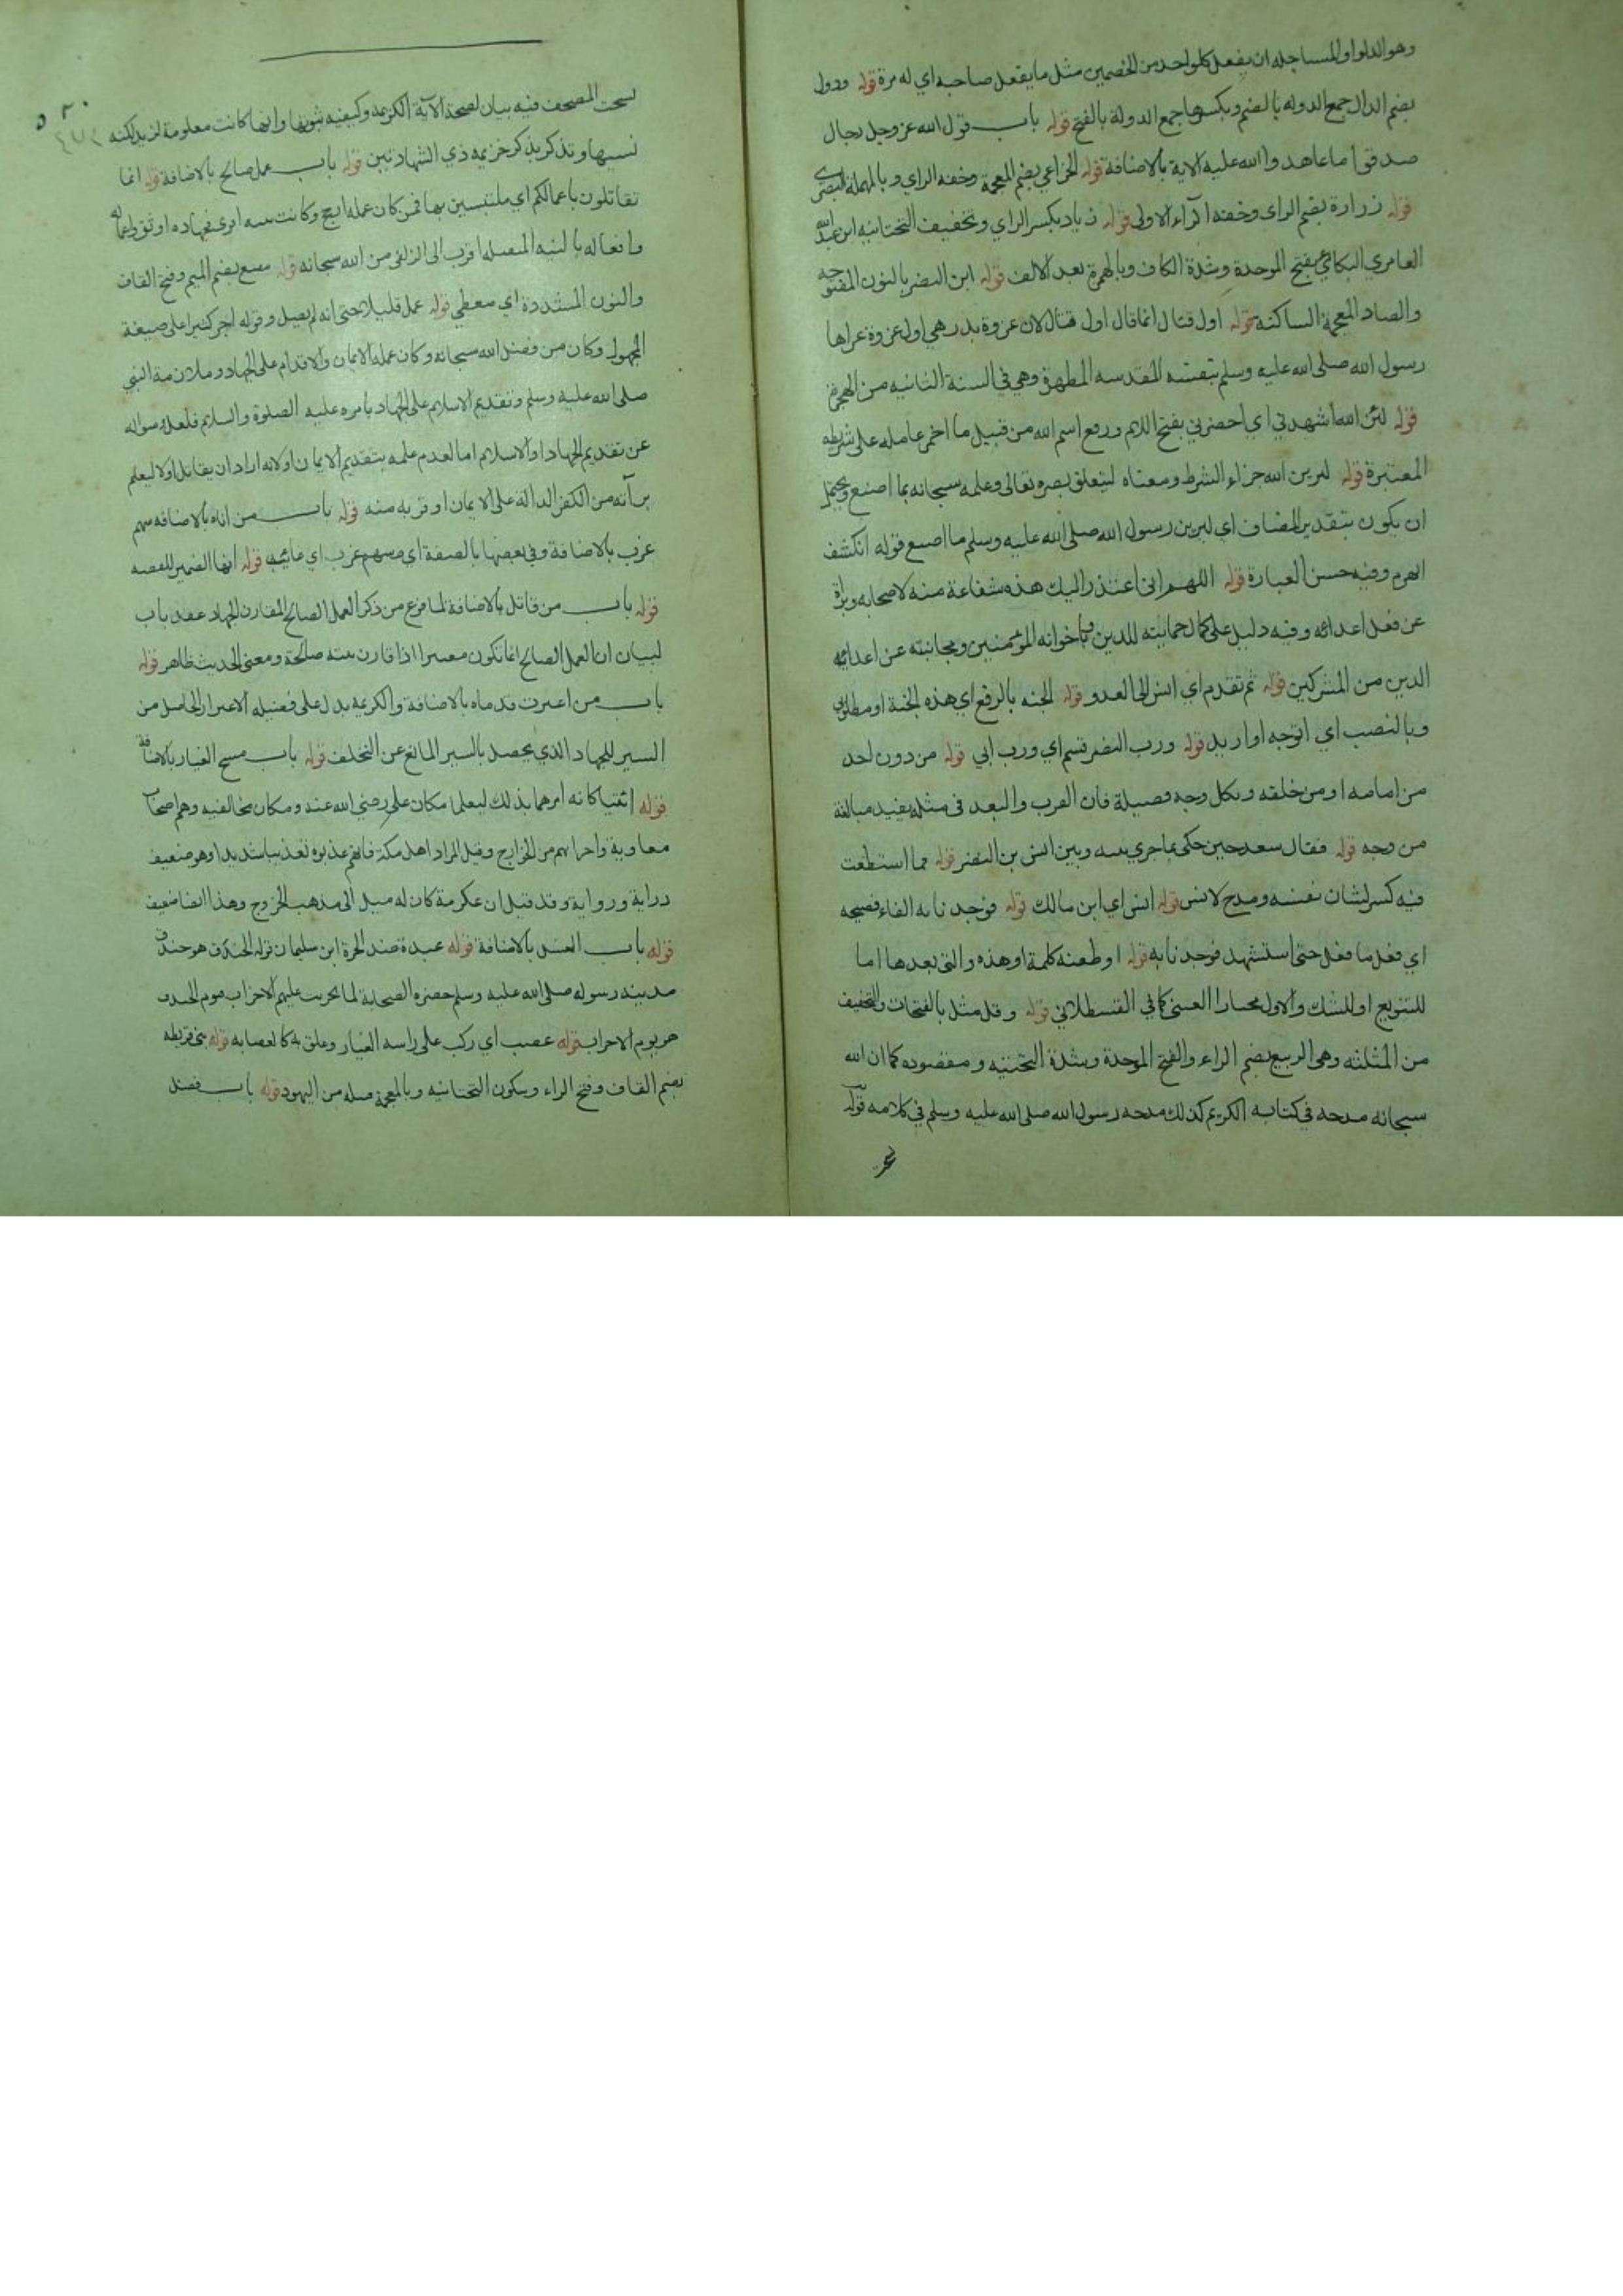 وهو الدلو او المساجله ان يفعل كلواحد من الخصمين مثل ما يفعل صاحبه اي له مرة قوله ودول
بضم الدال جمع الدوله بالضم وبكسرها جمع الدولة بالفتح قوله باب قول الله عز وجل رجال
صدقوا ما عاهدوا الله عليه الاية بالاضافة قوله الخزاعي بضم المعجمة وخفه الزاي وبالمهملة البصري
قوله زرارة بضم الزاى وخفه الراء الاولى قوله زياد بكسر الزاي وتخفيف التحتانيه ابن عبد الله
العامري البكائي بفتح الموحدة وشدة الكاف وبالهمزة بعد الالف قوله ابن النضر بالنون المفتوحه
والضاد المعجمة الساكنه قوله اول قتال انما قال اول قتال لان غزوة بدر هي اول غزوة غزاها
رسول الله صلى الله عليه وسلم بنفسه المقدسه المطهرة وهي في السنة الثانيه من الهجرة
قوله لئن الله أشهدني اي أحضرني بفتح اللام ورفع اسم الله من قبيل ما اضمر عامله على شريطه
المعتبرة قوله ليرين الله جزاء الشرط ومعناه ليتعلق بصره تعالى وعلمه سبحانه بما اصنع ويحتمل
ان يكون بتقدير المضاف اي ليرين رسول الله صلى الله عليه وسلم ما اصنع قوله انكشف
انهزم وفيه حسن العبارة قوله اللهم اني اعتذر اليك هذه شفاعة منه لاصحابه وبراة
عن فعل اعدائه وفيه دليل على كمال حمايته للدين وباخوانه المؤمنين ومجانبته عن اعدائه
الدين من المشركين قوله ثم تقدم اي انس الى العدو قوله الجنه بالرفع اي هذه الجنة او مطلوبي
وبالنصب اي اتوجه او اريد قوله ورب النضر قسم اي ورب ابي قوله من دون احد
من امامه او من خلفه وبكل وجه فضيلة فان القرب والبعد في مثله يفيد مبالغة
من وجه قوله فقال سعد حين حكى بما جرى بينه وبين انس بن النضر قوله فما استطعت
فيه كسر لشان نفسه ومدح لانس قوله انس اي ابن مالك قوله فوجدنا به الفاء فصيحه
اي فعل ما فعل حتى استشهد فوجدنا به قوله او طعنه كلمة او هذه والتى بعدها اما
للتنويع او للشك والاول مختار العيني كما في القسطلاني قوله وقد مثل بالفتحات والتخفيف
من المثلثه وهى الربيع بضم الراء والفتح الموحدة وشدة التحتنيه ومقصوده كما ان الله
سبحانه مدحه في كتابه الكريم كذلك مدحه رسول الله صلى الله عليه وسلم في كلامه قوله
نسخت المصحف فيه بيان لصحة الآية الكريمه وكيفيه ثبوتها وانها كانت معلومة لزيد لكنه
نسيها وتذكر بذكر خزيمه ذي الشهادتين قوله باب عمل صالح بالاضافة قوله انما
تقاتلون باعمالكم اي ملتبسين بها فمن كان عمله انجح وكانت نيته اقوى فجهاده اوثق واعماله
وافعاله بالنيه المتصله اقرب الى الزلفى من الله سبحانه قوله مقنع بضم الميم وفتح القاف
والنون المشددة اي مغطي قوله عمل قليلا حتى انه لم يصل وقوله اجر كثيرا على صيغة
المجهول وكان من فضل الله سبحانه وكان عمله الايمان والاقدام على الجهاد وملازمة النبي
صلى الله عليه وسلم وتقديم الاسلام على الجهاد بامره عليه الصلوة والسلام فلعل سواله
عن تقديم الجهاد او الاسلام اما لعدم علمه بتقديم الايمان او لانه اراد ان يقاتل اولا ليعلم
برآته من الكفر الدالة على الايمان او قربه منه قوله باب من اتاه بالاضافه سهم
غرب بالاضافة وفي بعضها بالصفة اي سهم غرب اي غائب قوله انها الضمير للقصه
قوله باب من قاتل بالاضافة لما فرغ من ذكر العمل الصالح المقارن للجهاد عقد باب
لبيان ان العمل الصالح انما تكون معتبرا اذا قارن بنيته صالحة ومعنى الحديث ظاهر قوله
باب من اغبرت قدماه بالاضافة والكريمه يدل على فضيله الاغبرار الحاصل من
السير للجهاد الذي يحصل بالسير المانع عن التخلف قوله باب مسح الغبار بالاضافة
قوله ائتيا كانه امرهما بذلك ليعلما مكان علي رضي الله عنه ومكان مخالفيه وهم اصحاب
معاوية واحزابهم من الخوارج وقيل المراد اهل مكة فانهم عذبوه تعذيبا شديدا وهو ضعيف
دراية ورواية وقد قيل ان عكرمة كان له ميل الى مذهب الخروج وهذا ايضا ضعيف
قوله باب الغسل بالاضافة قوله عبدة ضد الحرة ابن سليمان قوله الخندق هو خندق
مدينه رسوله صلى الله عليه وسلم حضره الصحابة لما تحزبت عليهم الاحزاب فيوم الخندق
هو يوم الاحزاب قوله عصب اي ركب على راسه الغبار وعلق به كالعصابه قوله بني قريظه
بضم القاف وفتح الراء وسكون التحتانيه وبالمعجمة قبيله من اليهود قوله باب فضل